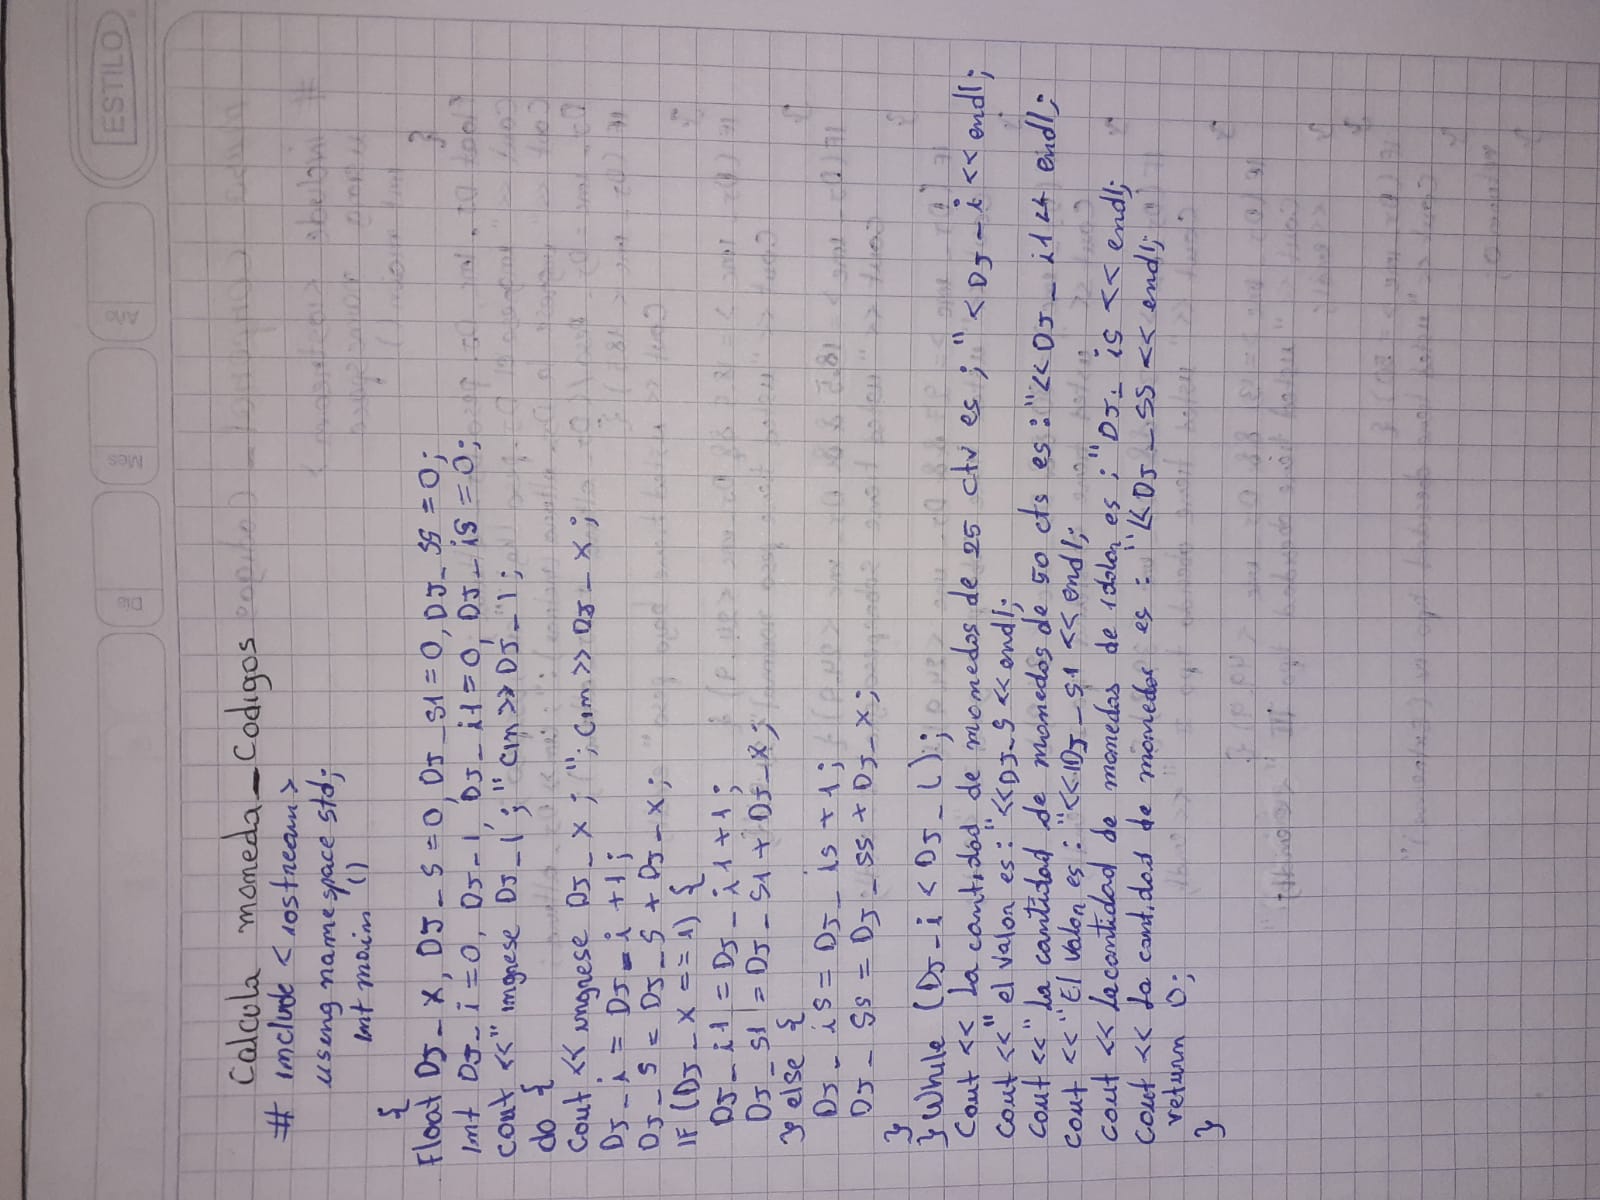 Dia
Mes
Año
ESTILO
Calcula moneda_Codigos
# include <iostream>
using namespace std;
int main ()
{
Float DJ_x, DJ_s=0, DJ_s1=0, DJ_ss=0;
int DJ_i=0, DJ-1, DJ_i1=0, DJ_is=0;
cout <<" ingrese DJ_1 ; " cin >> DJ_1 ;
do {
cout << ingrese DJ_x ; "; cin >> DJ_x ;
DJ_i = DJ_i +1;
DJ_s = DJ_s + DJ_x;
IF (DJ_x == 1) {
DJ_i1 = DJ_i1+1;
DJ_s1 = DJ_s1 + DJ_x;
} else {
DJ_is = DJ_is +1;
DJ_ss = DJ_ss + DJ_x;
}
} While (DJ_i < DJ_l);
Cout << La cantidad de monedas de 25 ctv es ; " < DJ_i << endl;
cout <<" el valor es : "<<DJ_s << endl;
cout <<" La cantidad de monedas de 50 cts es : "<< DJ_i1 << endl;
cout <<" El valor es : "<< DJ_s1 << endl;
cout << La cantidad de monedas de 1 dolar es ; " DJ_is << endl;
cout << La cantidad de monedas es : "<< DJ_ss << endl;
return 0;
}